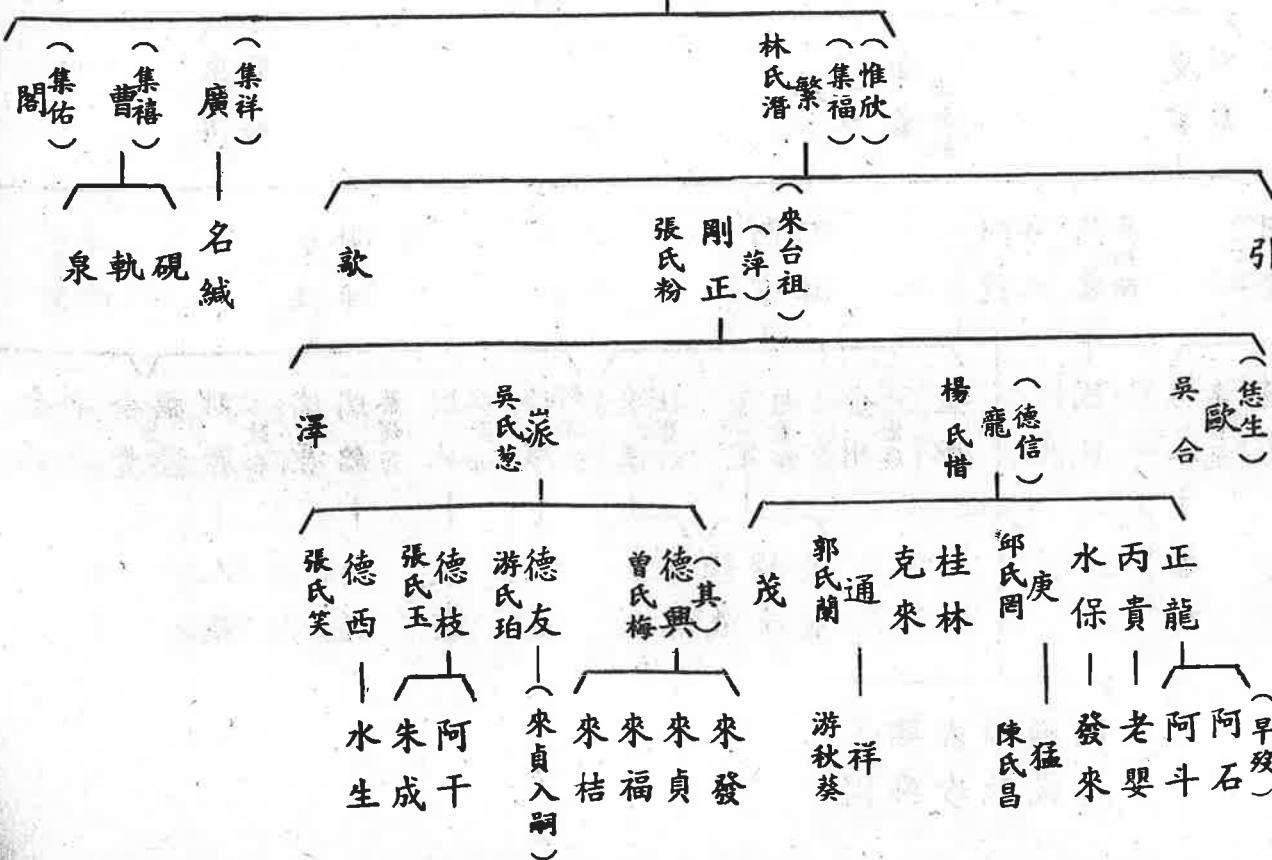 （惟欣）
（集福）
繁
林氏潛
（集祥）
廣
（集禧）
曹
（集佑）
閣
引
（來台祖）
（萍）
剛正
張氏粉
歐
名緘
硯
軌
泉
（恁生）
歐
吳合
（德信）
龐
楊氏惜
派
吳氏葱
澤
正龍
丙貴
水保
庚
邱氏罔
桂林
克來
通
郭氏蘭
茂
（其）
德興
曾氏梅
德友
游氏珀
德枝
張氏玉
德西
張氏笑
（早歿）
阿石
阿斗
老嬰
發來
猛
陳氏昌
祥
游秋葵
來發
來貞
來福
來桔
（來貞入嗣）
阿干
朱成
水生